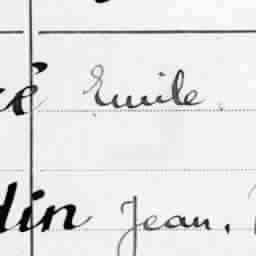 é Emile
din Jean,